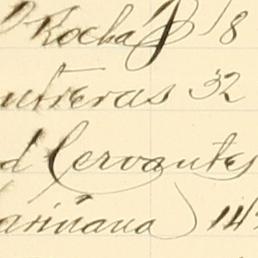 Rocha 18
ntreras 32
d Cervantes
ariñana 14